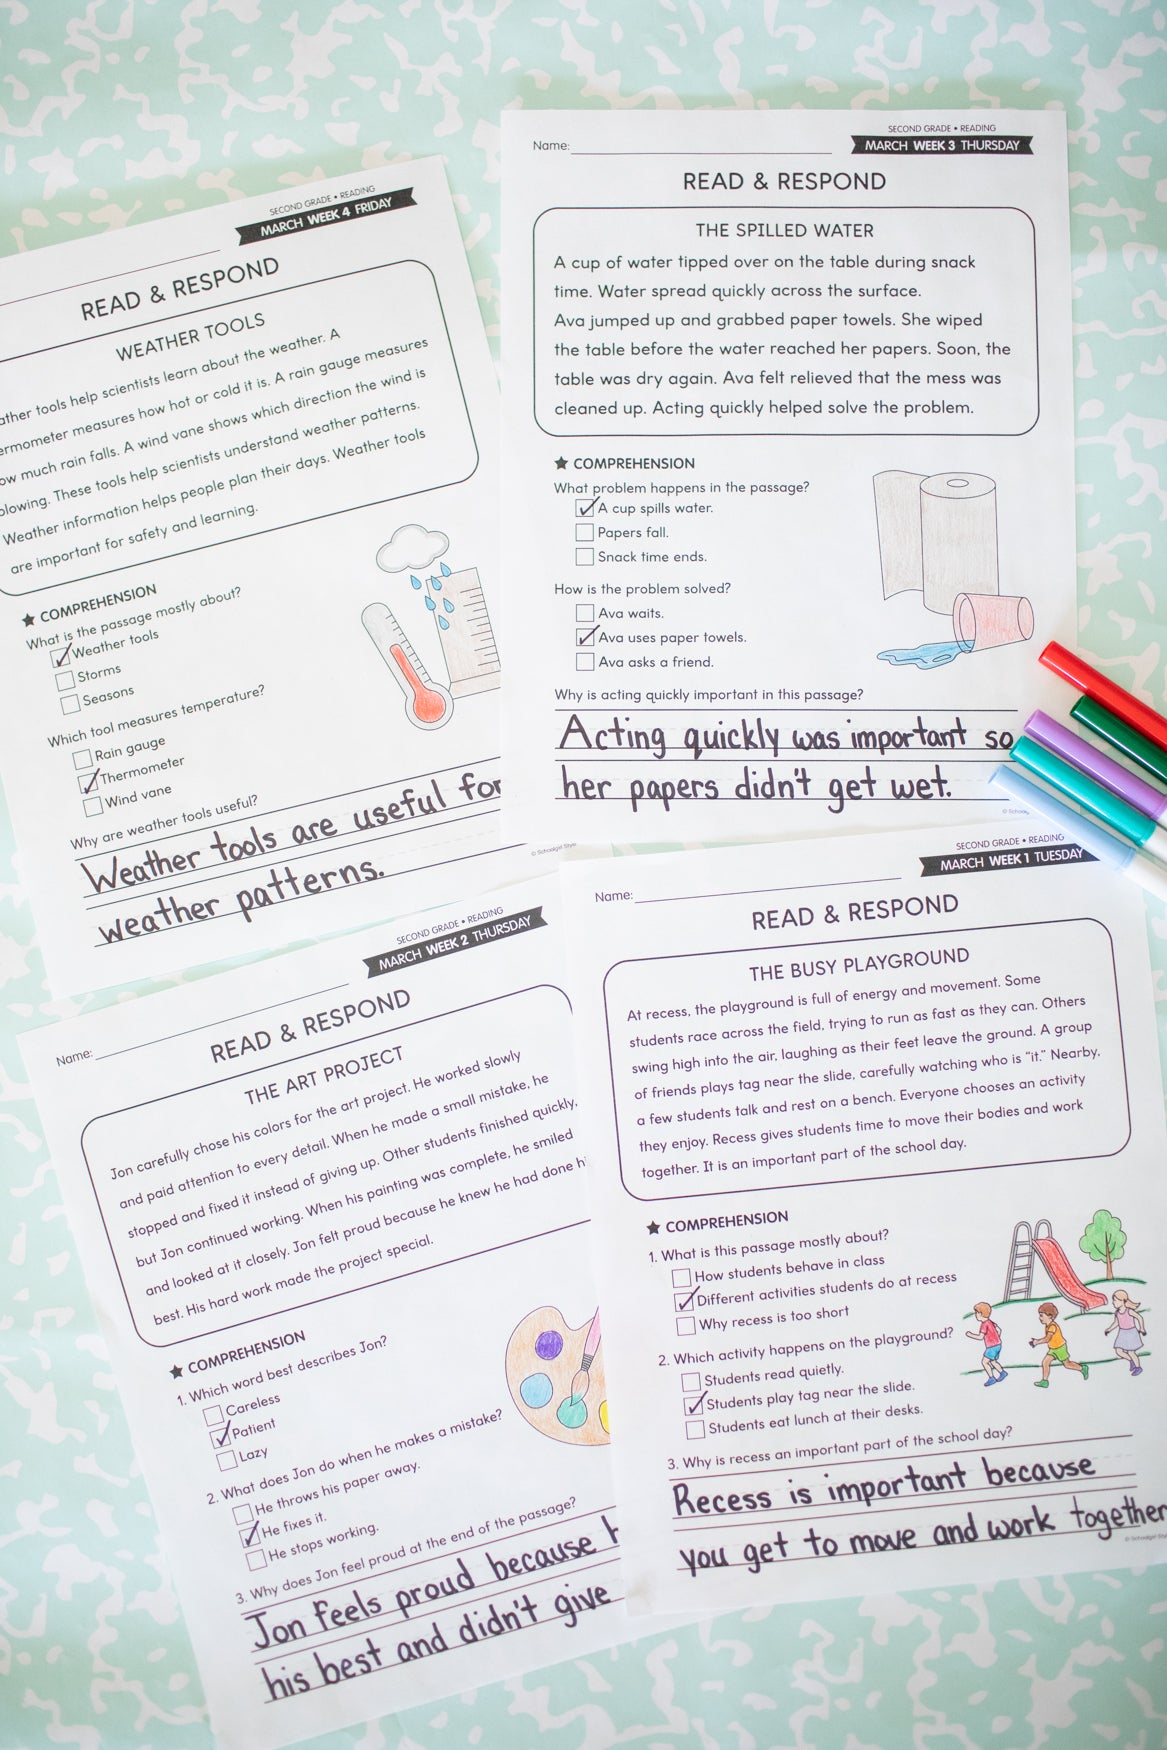 SECOND GRADE • READING
MARCH WEEK 4 FRIDAY
READ & RESPOND
WEATHER TOOLS
tools help scientists learn about the weather. A
measures how hot or cold it is. A rain gauge measures
much rain falls. A wind vane shows which direction the wind is
These tools help scientists understand weather patterns.
Weather information helps people plan their days. Weather tools
are important for safety and learning.
★ COMPREHENSION
What is the passage mostly about?
Weather tools
Storms
Seasons
Which tool measures temperature?
Rain gauge
Thermometer
Wind vane
Why are weather tools useful?
Weather tools are useful for
weather patterns.
SECOND GRADE • READING
Name:
MARCH WEEK 3 THURSDAY
READ & RESPOND
THE SPILLED WATER
A cup of water tipped over on the table during snack
time. Water spread quickly across the surface.
Ava jumped up and grabbed paper towels. She wiped
the table before the water reached her papers. Soon, the
table was dry again. Ava felt relieved that the mess was
cleaned up. Acting quickly helped solve the problem.
★ COMPREHENSION
What problem happens in the passage?
A cup spills water.
Papers fall.
Snack time ends.
How is the problem solved?
Ava waits.
Ava uses paper towels.
Ava asks a friend.
Why is acting quickly important in this passage?
Acting quickly was important so
her papers didn't get wet.
SECOND GRADE • READING
MARCH WEEK 2 THURSDAY
Name:
READ & RESPOND
THE ART PROJECT
Jon carefully chose his colors for the art project. He worked slowly
and paid attention to every detail. When he made a small mistake, he
stopped and fixed it instead of giving up. Other students finished quickly,
but Jon continued working. When his painting was complete, he smiled
and looked at it closely. Jon felt proud because he knew he had done
best. His hard work made the project special.
★ COMPREHENSION
1. Which word best describes Jon?
Careless
Patient
Lazy
2. What does Jon do when he makes a mistake?
He throws his paper away.
He fixes it.
He stops working.
3. Why does Jon feel proud at the end of the passage?
Jon feels proud because
his best and didn't give
SECOND GRADE • READING
MARCH WEEK 1 TUESDAY
Name:
READ & RESPOND
THE BUSY PLAYGROUND
At recess, the playground is full of energy and movement. Some
students race across the field, trying to run as fast as they can. Others
swing high into the air, laughing as their feet leave the ground. A group
of friends plays tag near the slide, carefully watching who is "it." Nearby,
a few students talk and rest on a bench. Everyone chooses an activity
they enjoy. Recess gives students time to move their bodies and work
together. It is an important part of the school day.
★ COMPREHENSION
1. What is this passage mostly about?
How students behave in class
Different activities students do at recess
Why recess is too short
2. Which activity happens on the playground?
Students read quietly.
Students play tag near the slide.
Students eat lunch at their desks.
3. Why is recess an important part of the school day?
Recess is important because
you get to move and work together